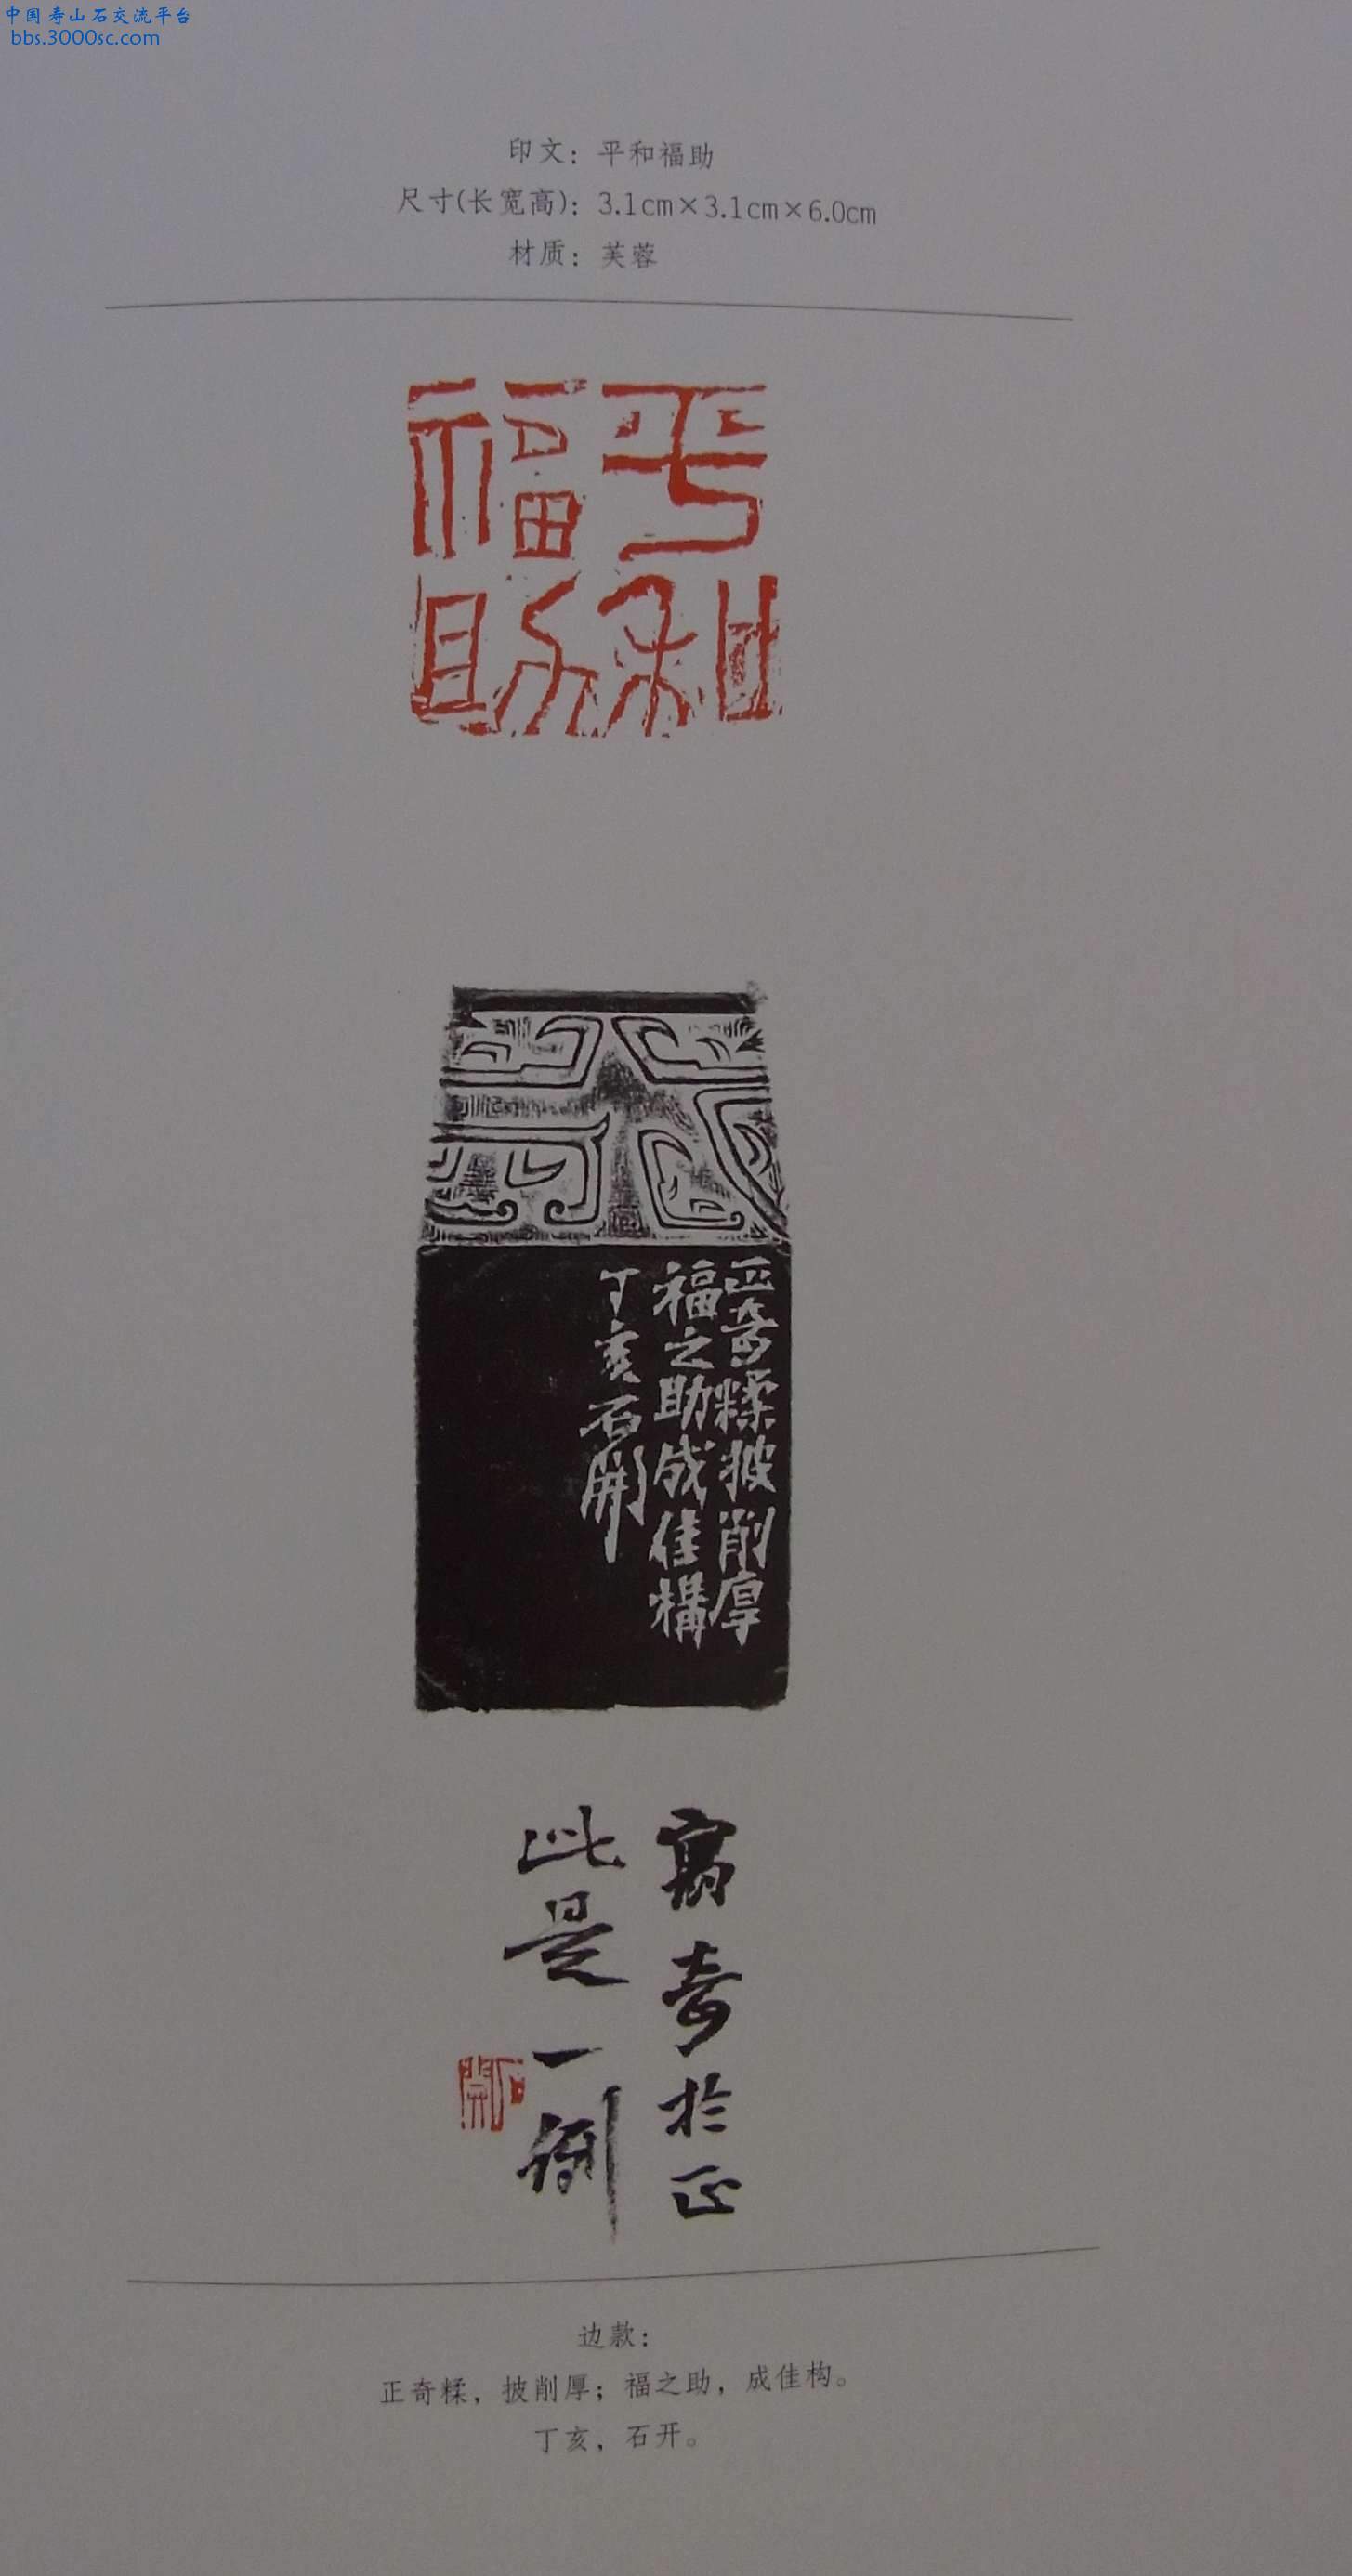 中国寿山石交流平台
bbs.3000sc.com
印文：平和福助
尺寸(长宽高)：3.1cm×3.1cm×6.0cm
材质：芙蓉
平和
福助
正奇糅披削厚
福之助成佳構
丁亥石開
寓奇於正
此是一例
石開
边款：
正奇糅，披削厚；福之助，成佳构。
丁亥，石开。